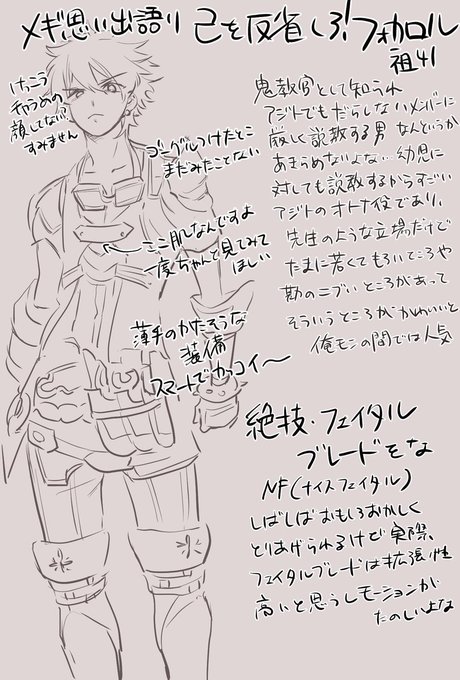 メギ思い出語り 己を反省しろ!フォカロル
祖41
けっこう
チャラめの
顔してないか、
すみません
ゴーグルつけたとこ
まだみたことない
鬼教官として知られ
アジトでもだらしないメンバーに
厳しく説教する男 なんというか
あきらめないよな… 幼児に
対しても説教するからすごい
アジトのオトナ役であり、
先生のような立場だけど
たまに若くてもろいところや
勘のニブいところがあって
そういうところがかわいいと
俺モンの間では人気
ここ肌なんですよ
一度ちゃんと見てみて
ほしい
薄手のかたそうな
装備
スマートでカッコイ〜
絶技・フェイタル
ブレードをな
NF(ナイスフェイタル)
しばしばおもしろおかしく
とりあげられるけど実際、
フェイタルブレードは拡張性
高いと思うしモーションが
たのしいよな